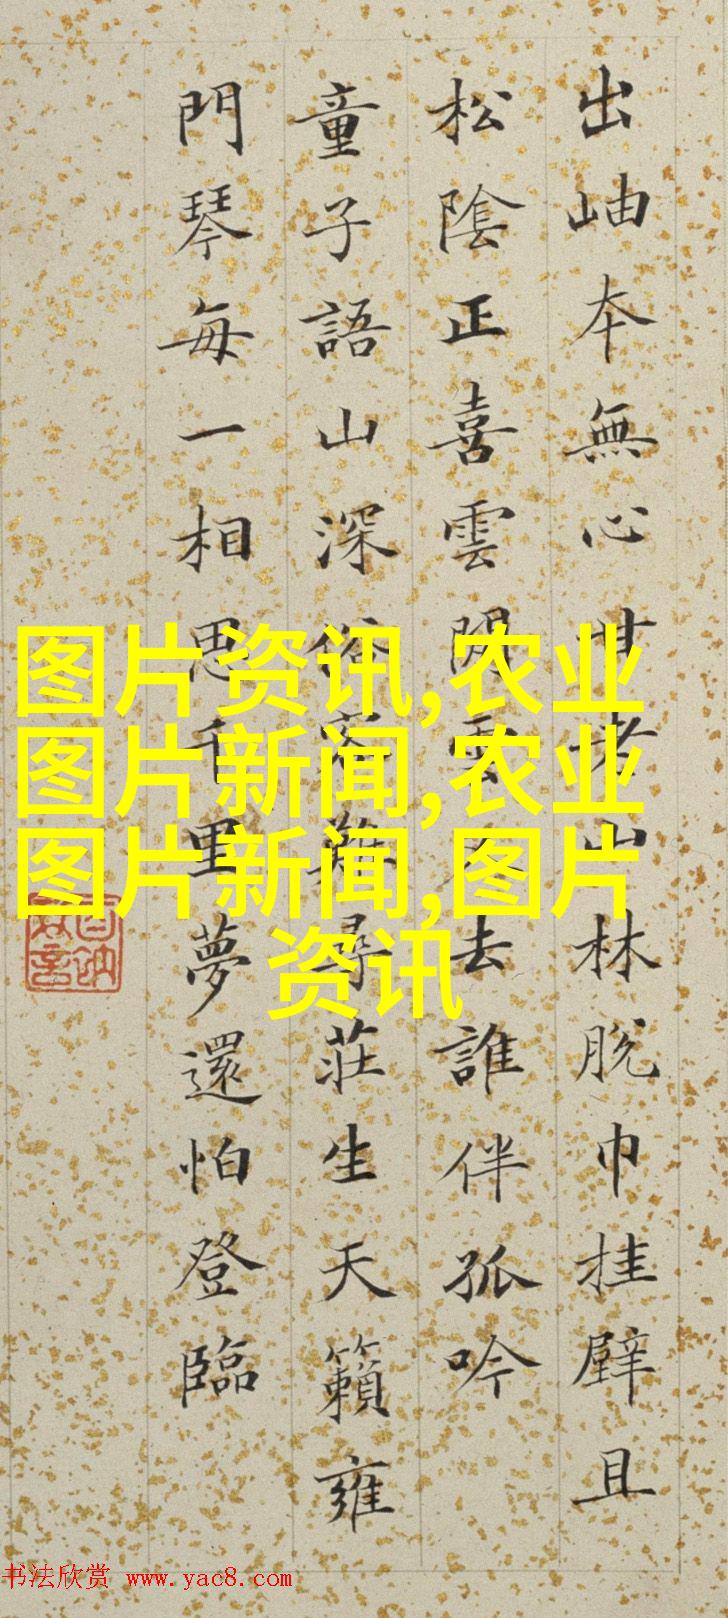 出岫本無心甘老山林脫巾挂壁且
松陰正喜雲閒雲去誰伴孤吟
童子語山深俗客難尋莊生天籟雍
門琴每一相思千里夢還怕登臨
图片资讯,农业
图片新闻,农业
图片新闻,图片
资讯
书法欣赏 www.yac8.com